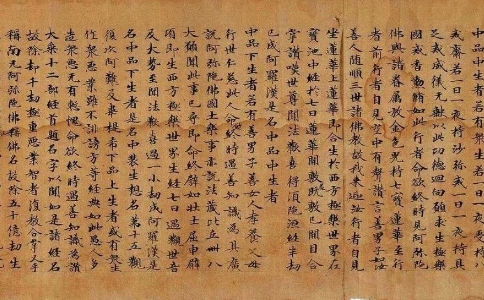 中品中生者若有眾生若一日一夜受
戒齋若一日一夜持沙彌戒若一日一夜持具
足戒威儀无缺以此功德迴向願求生極樂
國戒香勳脩如此行者命欲終時見阿彌陀
佛與諸眷屬放金色光持七寶蓮華至行
者前行者自見空中有聲讚言善男子如汝
善人隨順三世諸佛教故我來迎汝行者自見
坐蓮華上蓮華即合生於西方極樂世界在
寶池中經於七日蓮華開敷既敷已開目合
掌讚嘆世尊聞法歡喜得須陀洹經半劫
已成阿羅漢是名中品中生者
中品下生者若有善男子善女人孝養父母
行世仁慈此人命終時遇善知識為其廣
說阿彌陀佛國土樂事亦說法藏比丘卌八
大願聞此事已尋即命終譬如壯士屈申臂
項即生西方極樂世界生七日遇觀世音
及大勢至聞法歡喜過一小劫成阿羅漢
是名中品下生者是名中輩生想名第十五觀
復次阿難及韋提希下品上生者或有眾生
作眾惡業雖不誹謗方等經典如此愚人多
造眾惡无有慚愧命欲終時遇善知識為讚
大乘十二部經首題名字以聞如是諸經名
故除却千劫極重惡業智者復教合掌叉手
稱南无阿彌陀佛稱佛名故除五十億劫生